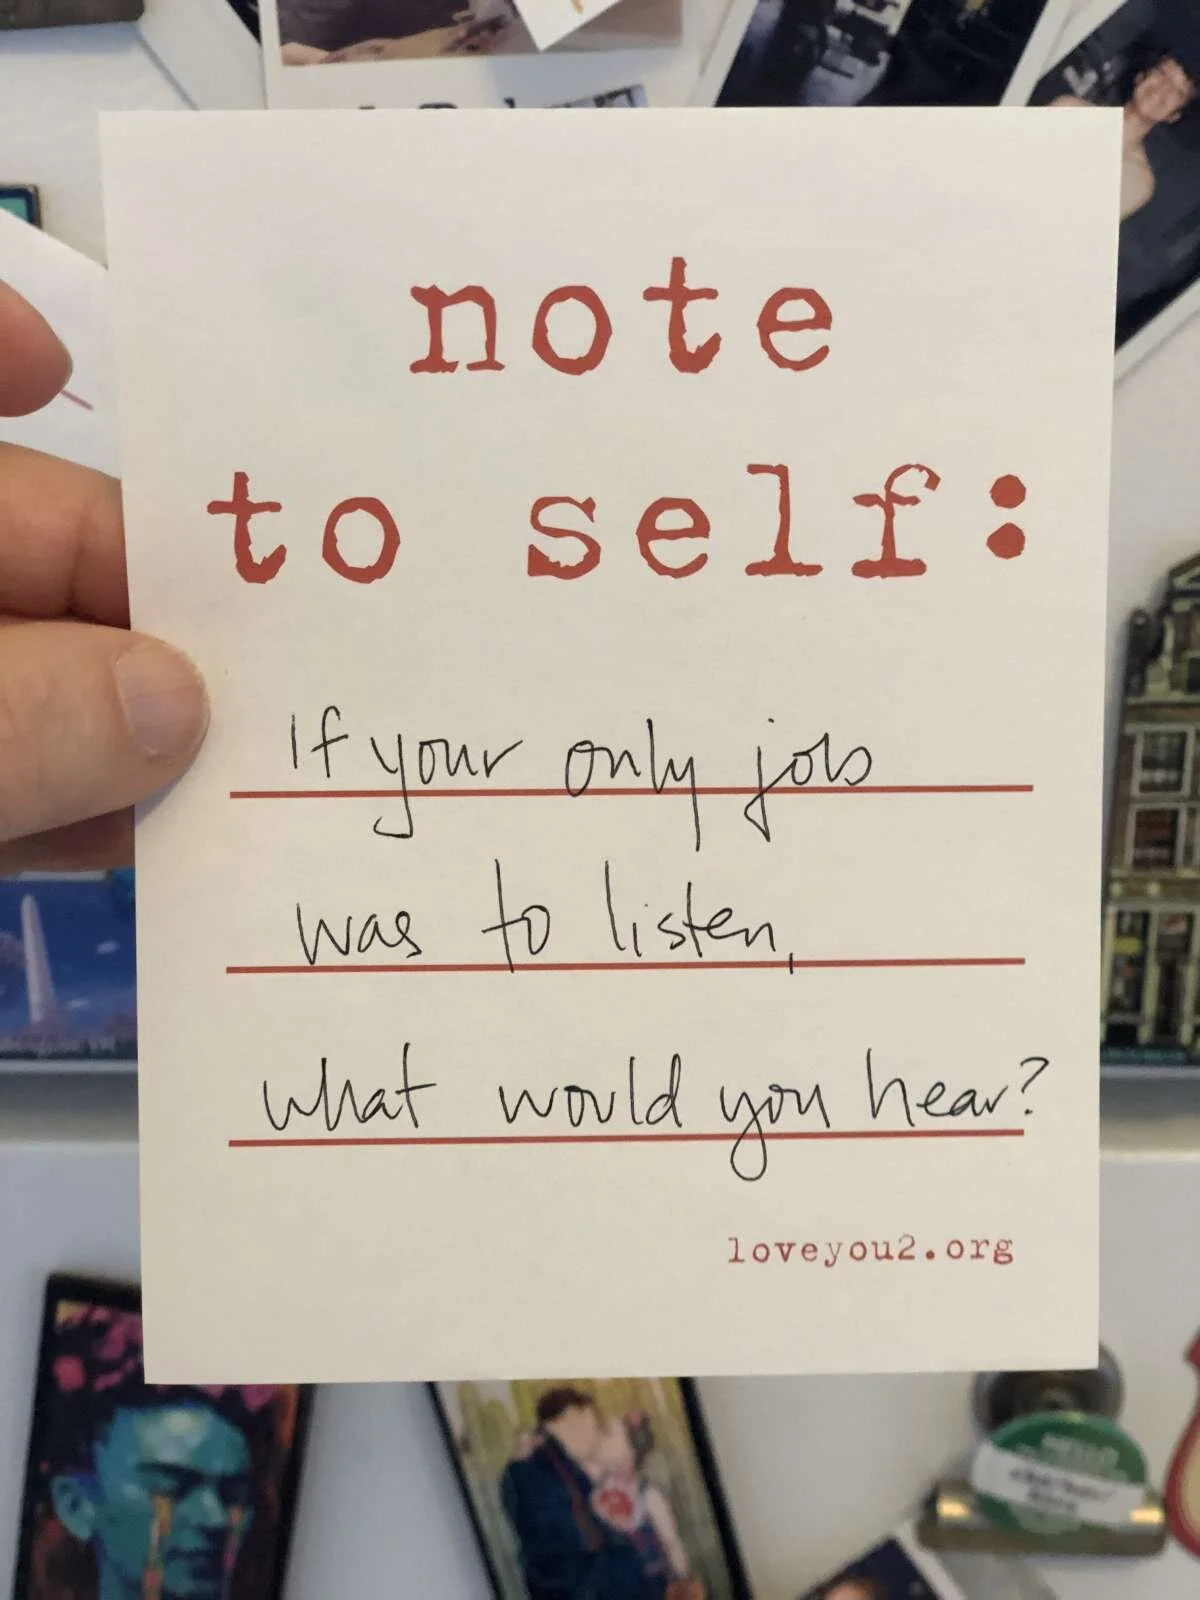 note
to self:
If your only job
was to listen,
what would you hear?
loveyou2.org
HELLO